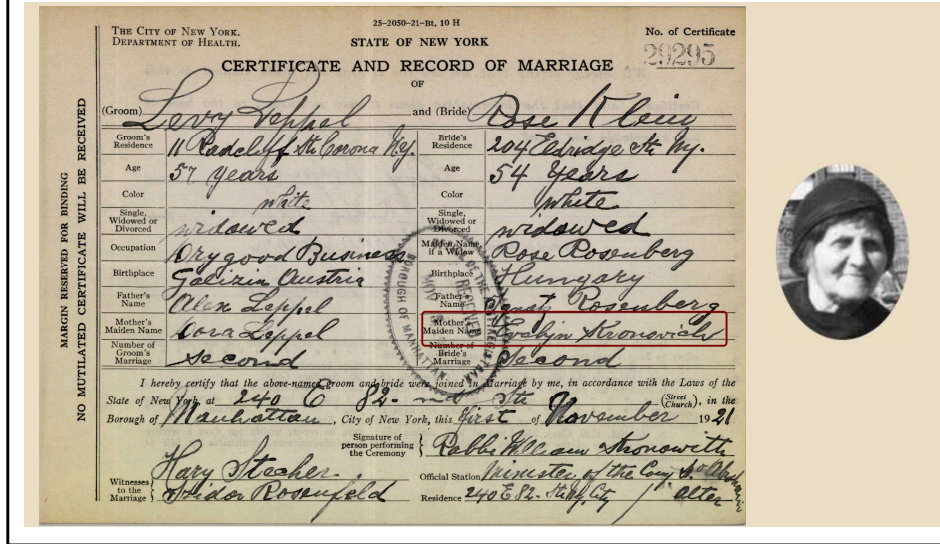 25-2050-21-Bt, 10 H
THE CITY OF NEW YORK.
DEPARTMENT OF HEALTH.
STATE OF NEW YORK
No. of Certificate
29295
CERTIFICATE AND RECORD OF MARRIAGE
OF
(Groom) Levy Leppel and (Bride) Rose Klein
Groom's Residence 11 Radcliff St. Corona N.Y. Bride's Residence 204 Eldridge St. Ny.
Age 57 years Age 54 years
Color white Color White
Single, Widowed or Divorced widowed Single, Widowed or Divorced widowed
Occupation Drygood Business Maiden Name if a Widow Rose Rosenberg
Birthplace Galizin Austria Birthplace Hungary
Father's Name Alex Leppel Father's Name Rosenberg
Mother's Maiden Name Leppel Mother's Maiden Name Evelyn Kronovich
Number of Groom's Marriage Second Number of Bride's Marriage Second
I hereby certify that the above-named groom and bride were joined in Marriage by me, in accordance with the Laws of the
State of New York, at 240 E 82-nd Str (Street Church), in the
Borough of Manhattan, City of New York, this first of November 1921
Signature of person performing the Ceremony Rabbi William
Witnesses to the Marriage Hary Stecher
Isidor Rosenfeld
Official Station Minister of the Cong.
Residence 240 E 82- St. Ny. City
MARGIN RESERVED FOR BINDING
NO MUTILATED CERTIFICATE WILL BE RECEIVED
BOROUGH OF MANHATTAN